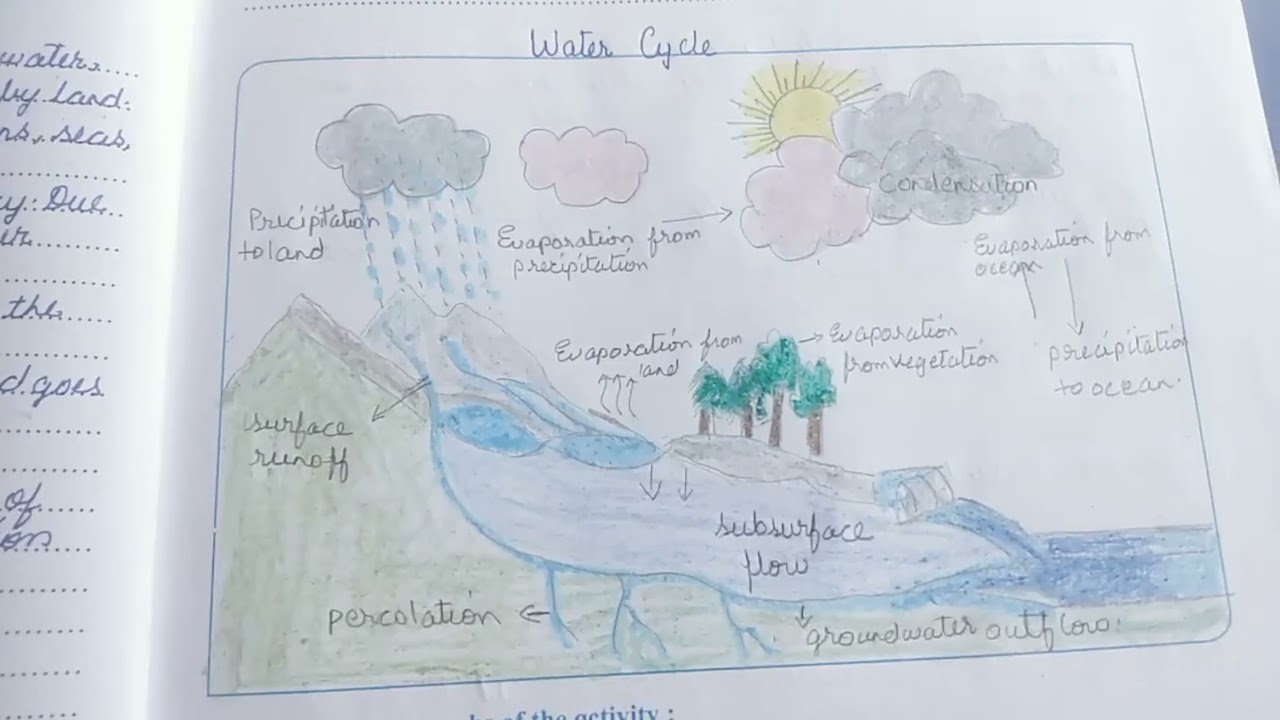 water
by land.
seas,
Due
the
goes
of
Water Cycle
Precipitation
to land
Evaporation from
precipitation
Condensation
Evaporation from
ocean
precipitatio
to ocean.
Evaporation from
land
Evaporation
from vegetation
surface
runoff
subsurface
flow
percolation
groundwater outflow.
of the activity :